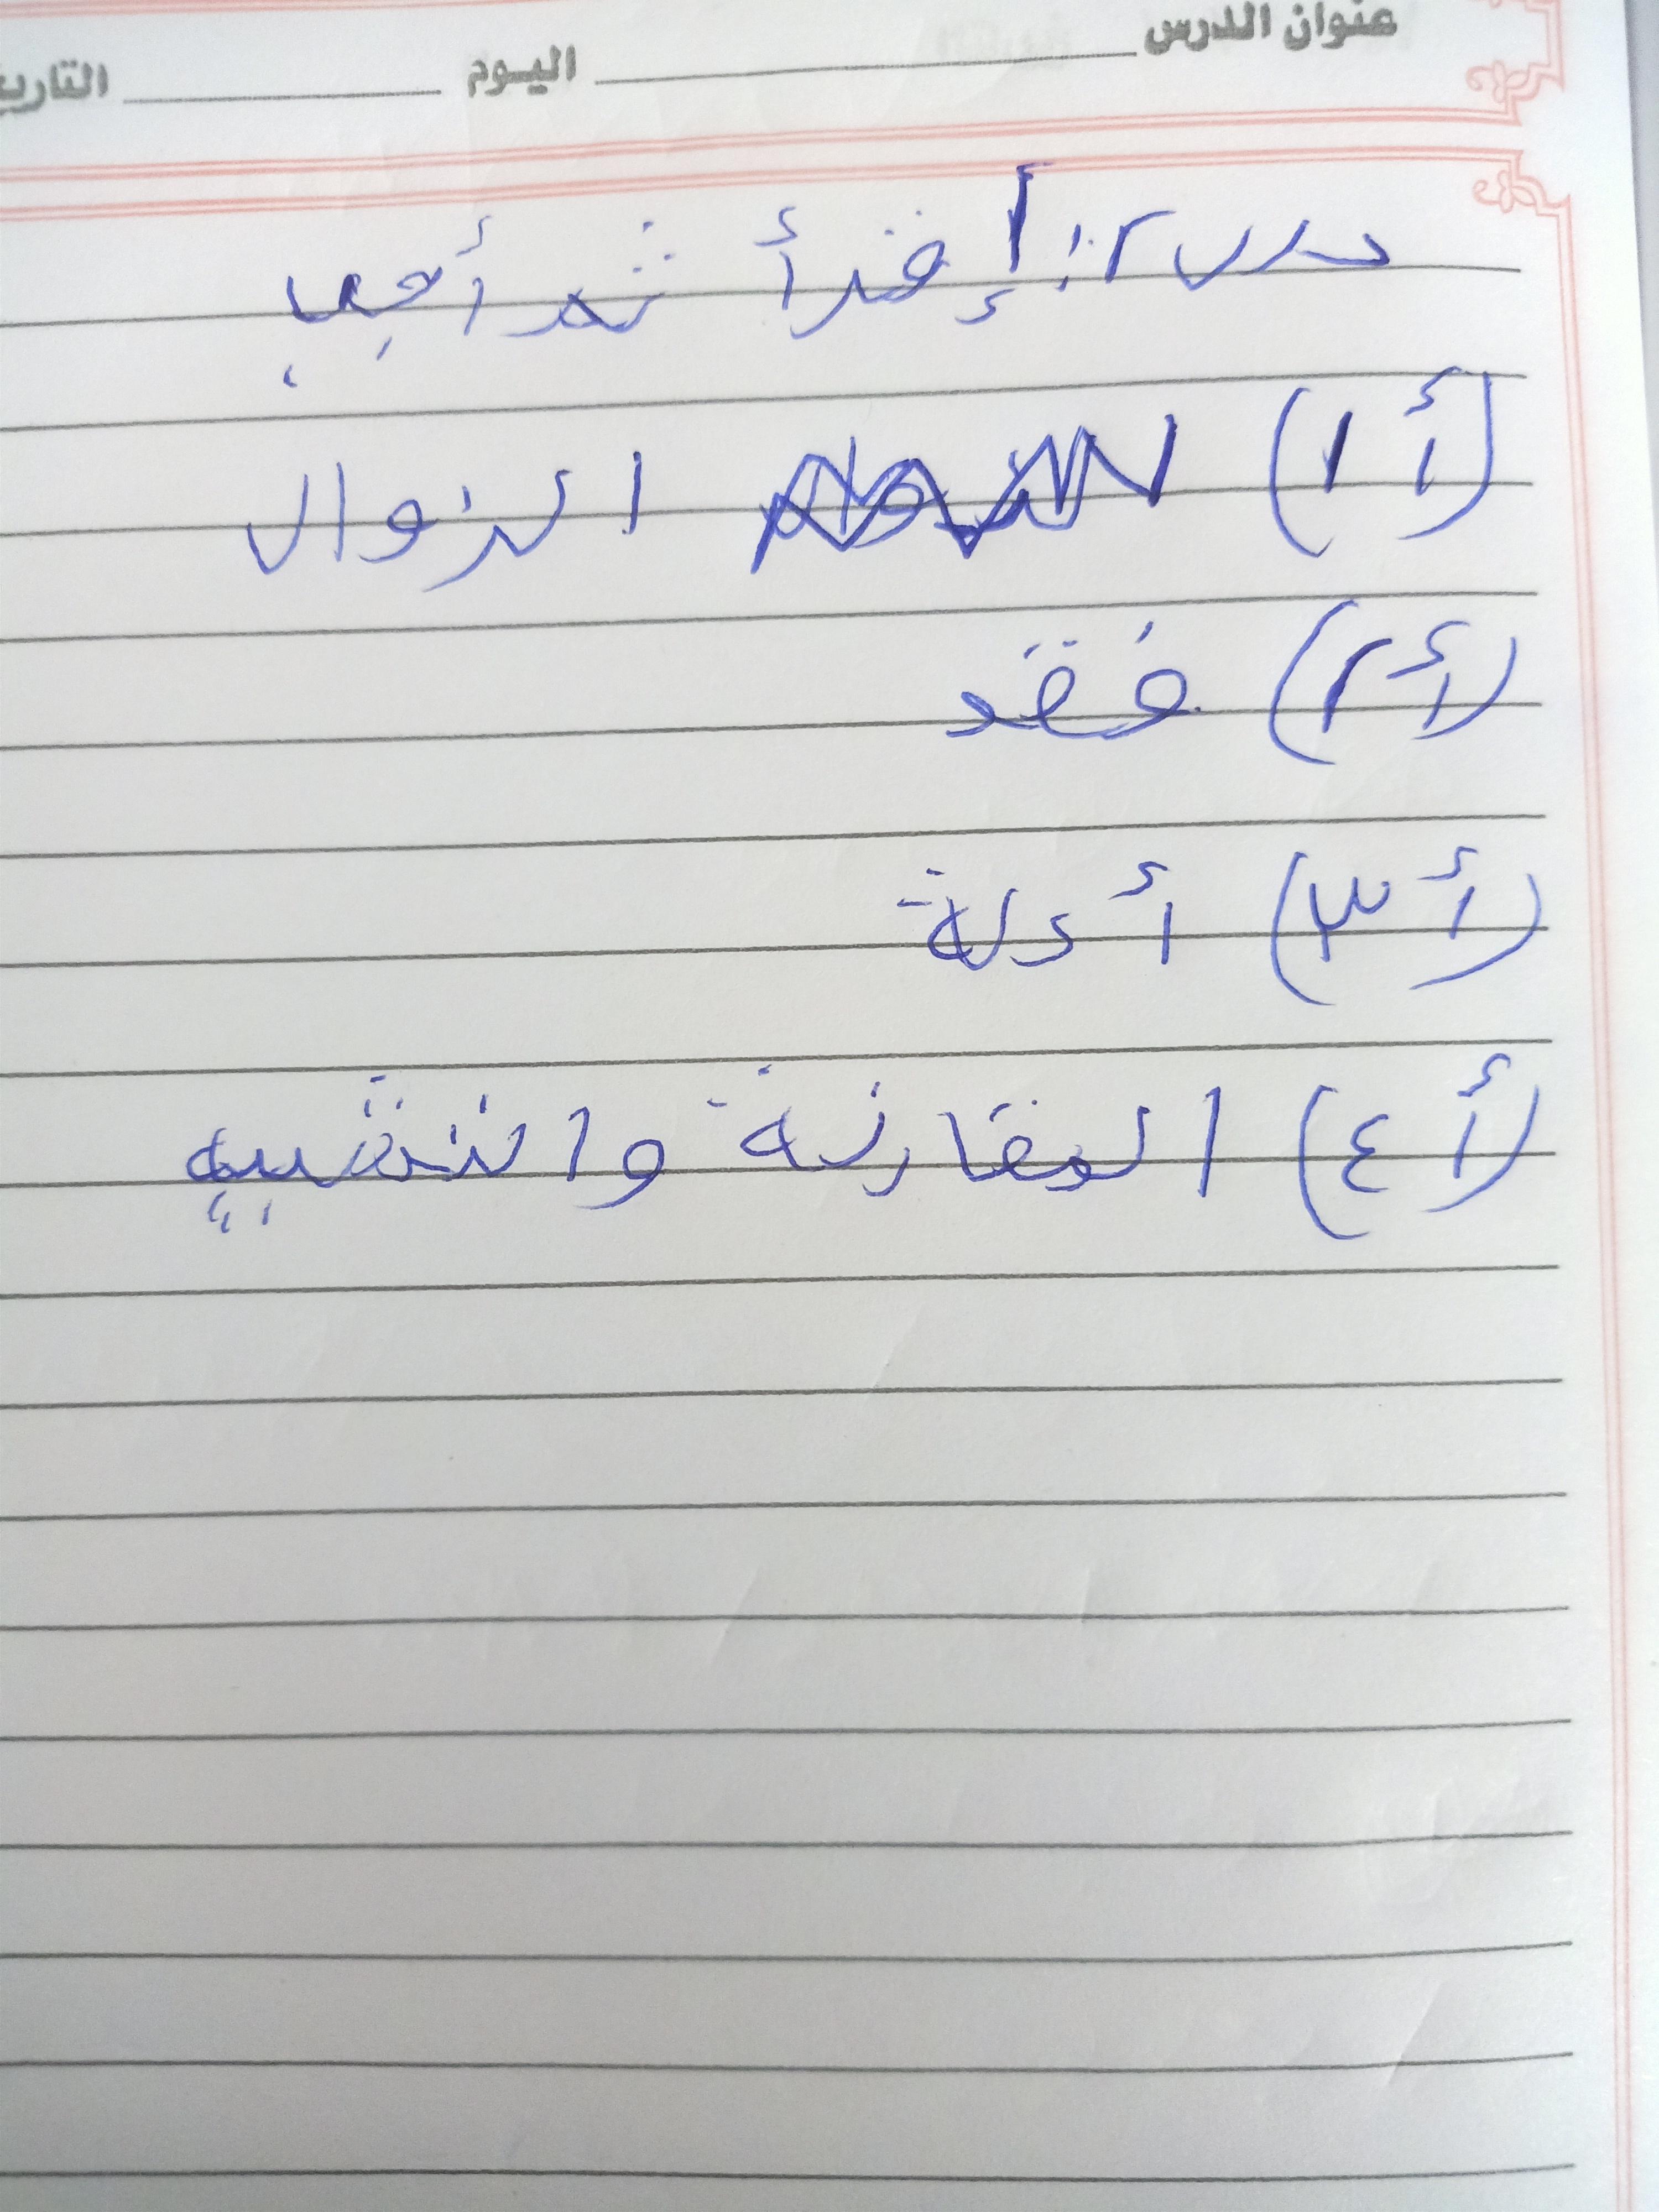 عنوان الدرس اليوم التاريخ
درس ٢: إقرأ ثم أجيب
(أ ١) الزوال
(أ ٢) فقد
(أ ٣) أدلة
(أ ٤) المقارنة والتشبيه